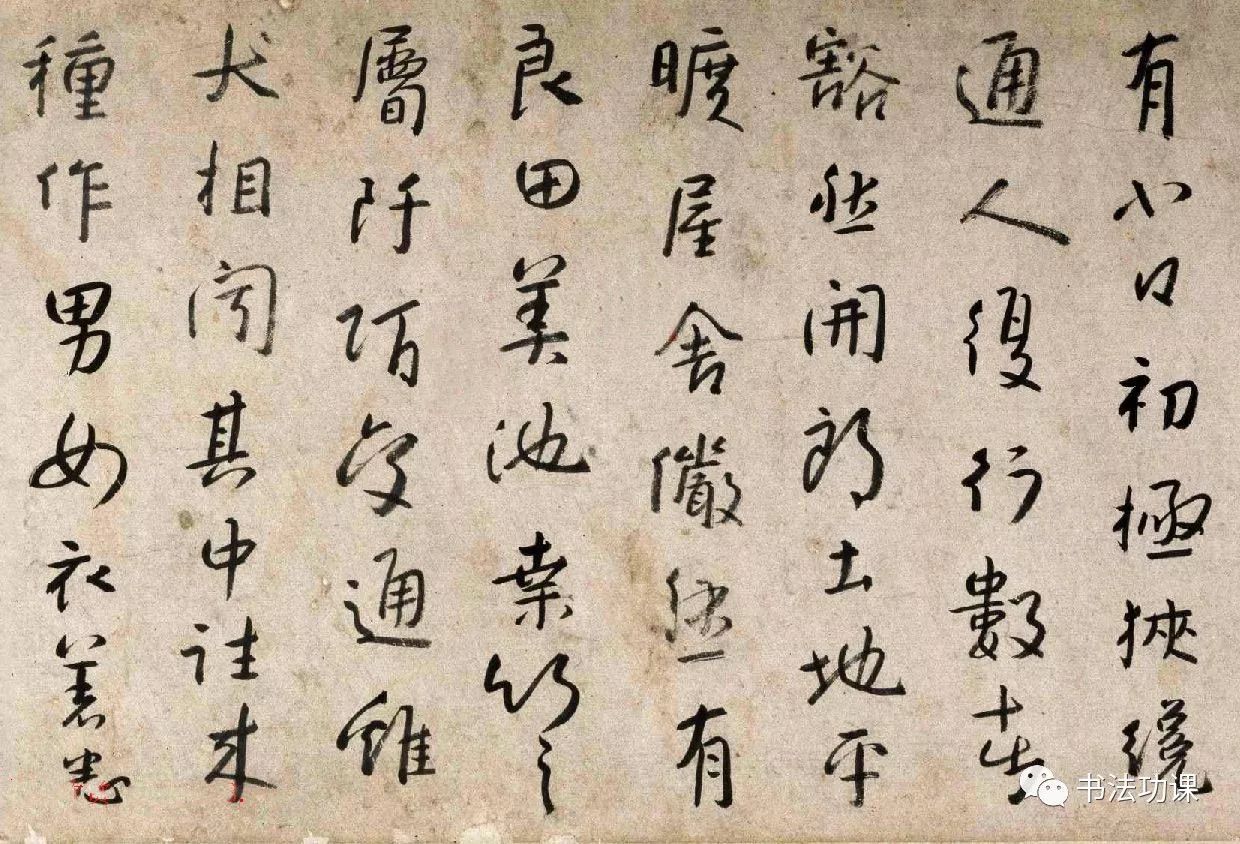 有小口初極狹纔
通人復行數十步
豁然開朗土地平
曠屋舍儼然有
良田美池桑竹之
屬阡陌交通雞
犬相聞其中往來
種作男女衣著悉
书法功课